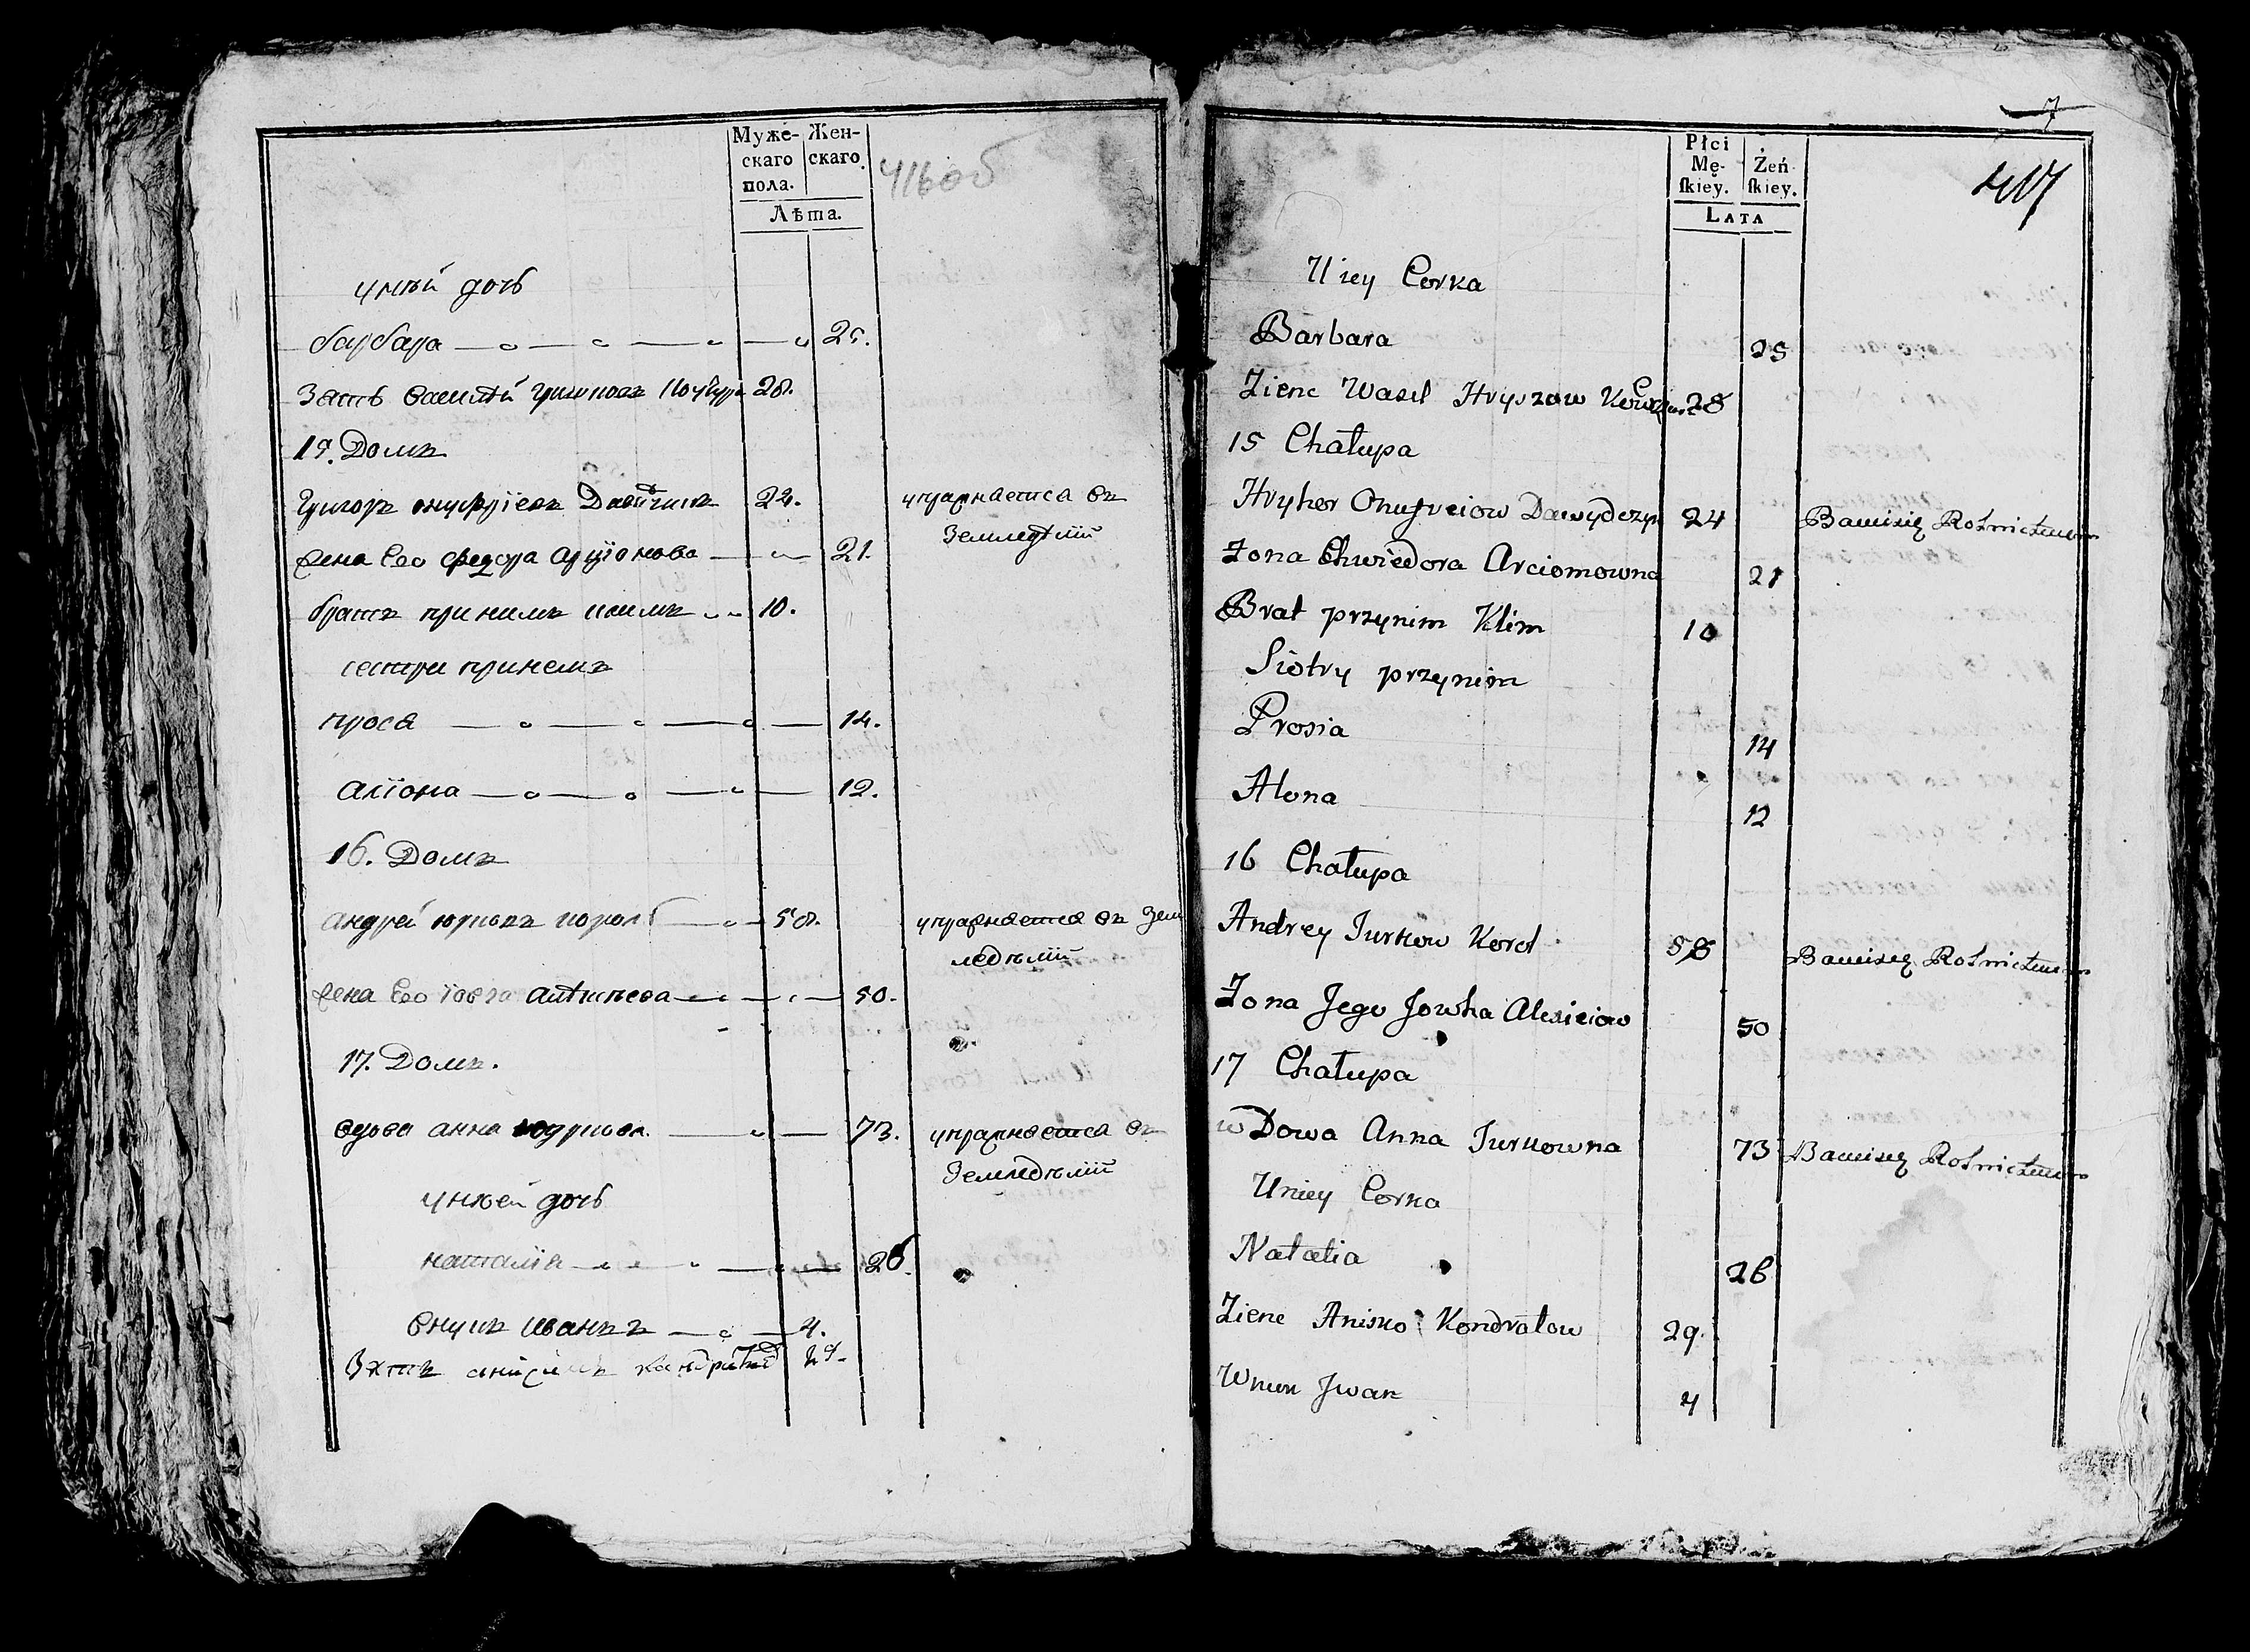 Муже-
скаго
пола.
Жен-
скаго.
Лѣта.
416об
унѣй дочь
барбара 25.
Зять василѣй Гришковъ 28.
15. Домъ
Григоръ онуфріевъ Давыдчикъ 24. упражняется въ
Земледѣлій
жена Его федора арціомова 21.
братъ при нимъ климъ 10.
сестри принемъ
проса 14.
аліона 12.
16. Домъ
андрей юрковъ король 58. упражняется въ Зем
ледѣлій
жена Его іовга алѣксѣева 50.
17. Домъ.
вдова анна 73. упражняется въ
Земледѣлій
унюей дочь
наталія 26.
внукъ иванъ 4.
Зять анисимъ 29.
7
417
Płci
Mę-
ſkiey.
Żeń-
ſkiey.
LATA
U iey Corka
Barbara 25
Zienc Wasil Hryszow 28
15 Chałupa
Hryhor Onufreiow Dawydczyk 24 Bawisię Rolnictwem
Zona Chwiedora Arciomowna 21
Brat przynim Klim 10
Siotry przynim
Prosia 14
Alona 12
16 Chałupa
Andrey Jurkow Korol 58 Bawisię Rolnictwem
Zona Jego Jowha Alexieiow 50
17 Chałupa
wDowa Anna Jurkowna 73 Bawisię Rolnictwem
Uniey Corka
Natalia 26
Ziene Anisko Kondratow 29.
Wnuk Jwan 4